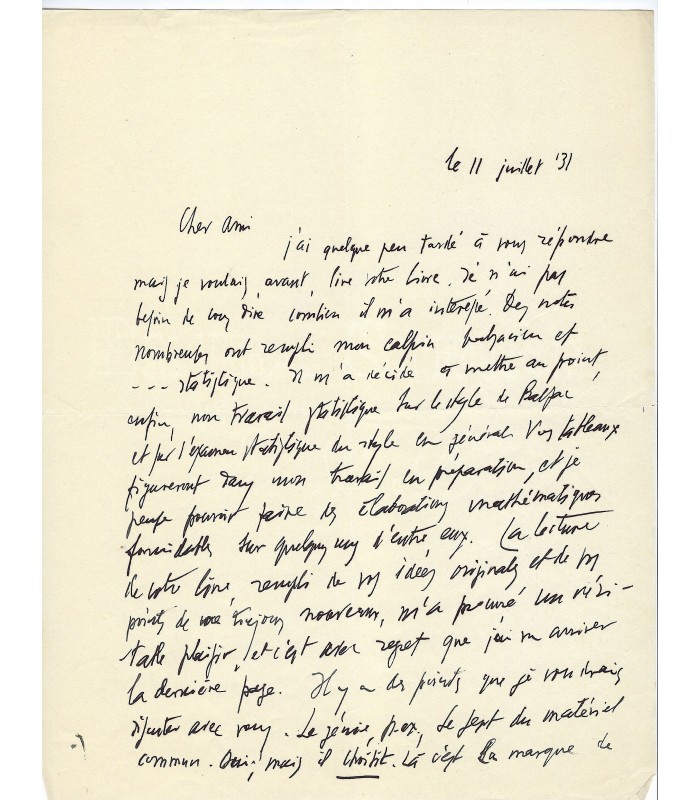 le 11 juillet '31
Cher Ami
j'ai quelque peu tardé à vous répondre
mais je voulais, avant, lire votre livre. Je n'ai pas
besoin de vous dire combien il m'a intéressé. Des notes
nombreuses ont rempli mon calepin balzacien et
--- statistique. Il m'a décidé à mettre au point,
enfin, mon travail statistique sur le style de Balzac,
et sur l'examen statistique du style en général. Vos tableaux
figureront dans mon travail en préparation, et je
pense pouvoir faire des élaborations mathématiques
formidables sur quelques uns d'entre eux. La lecture
de votre livre, rempli de vos idées originales et de vos
points de vue toujours nouveaux, m'a procuré un véri-
table plaisir, et c'est avec regret que j'ai vu arriver
la dernière page. Il y a des points que je voudrais
discuter avec vous. Le génie, p. ex., se sert du matériel
commun. Oui, mais il choisit. Là c'est la marque de